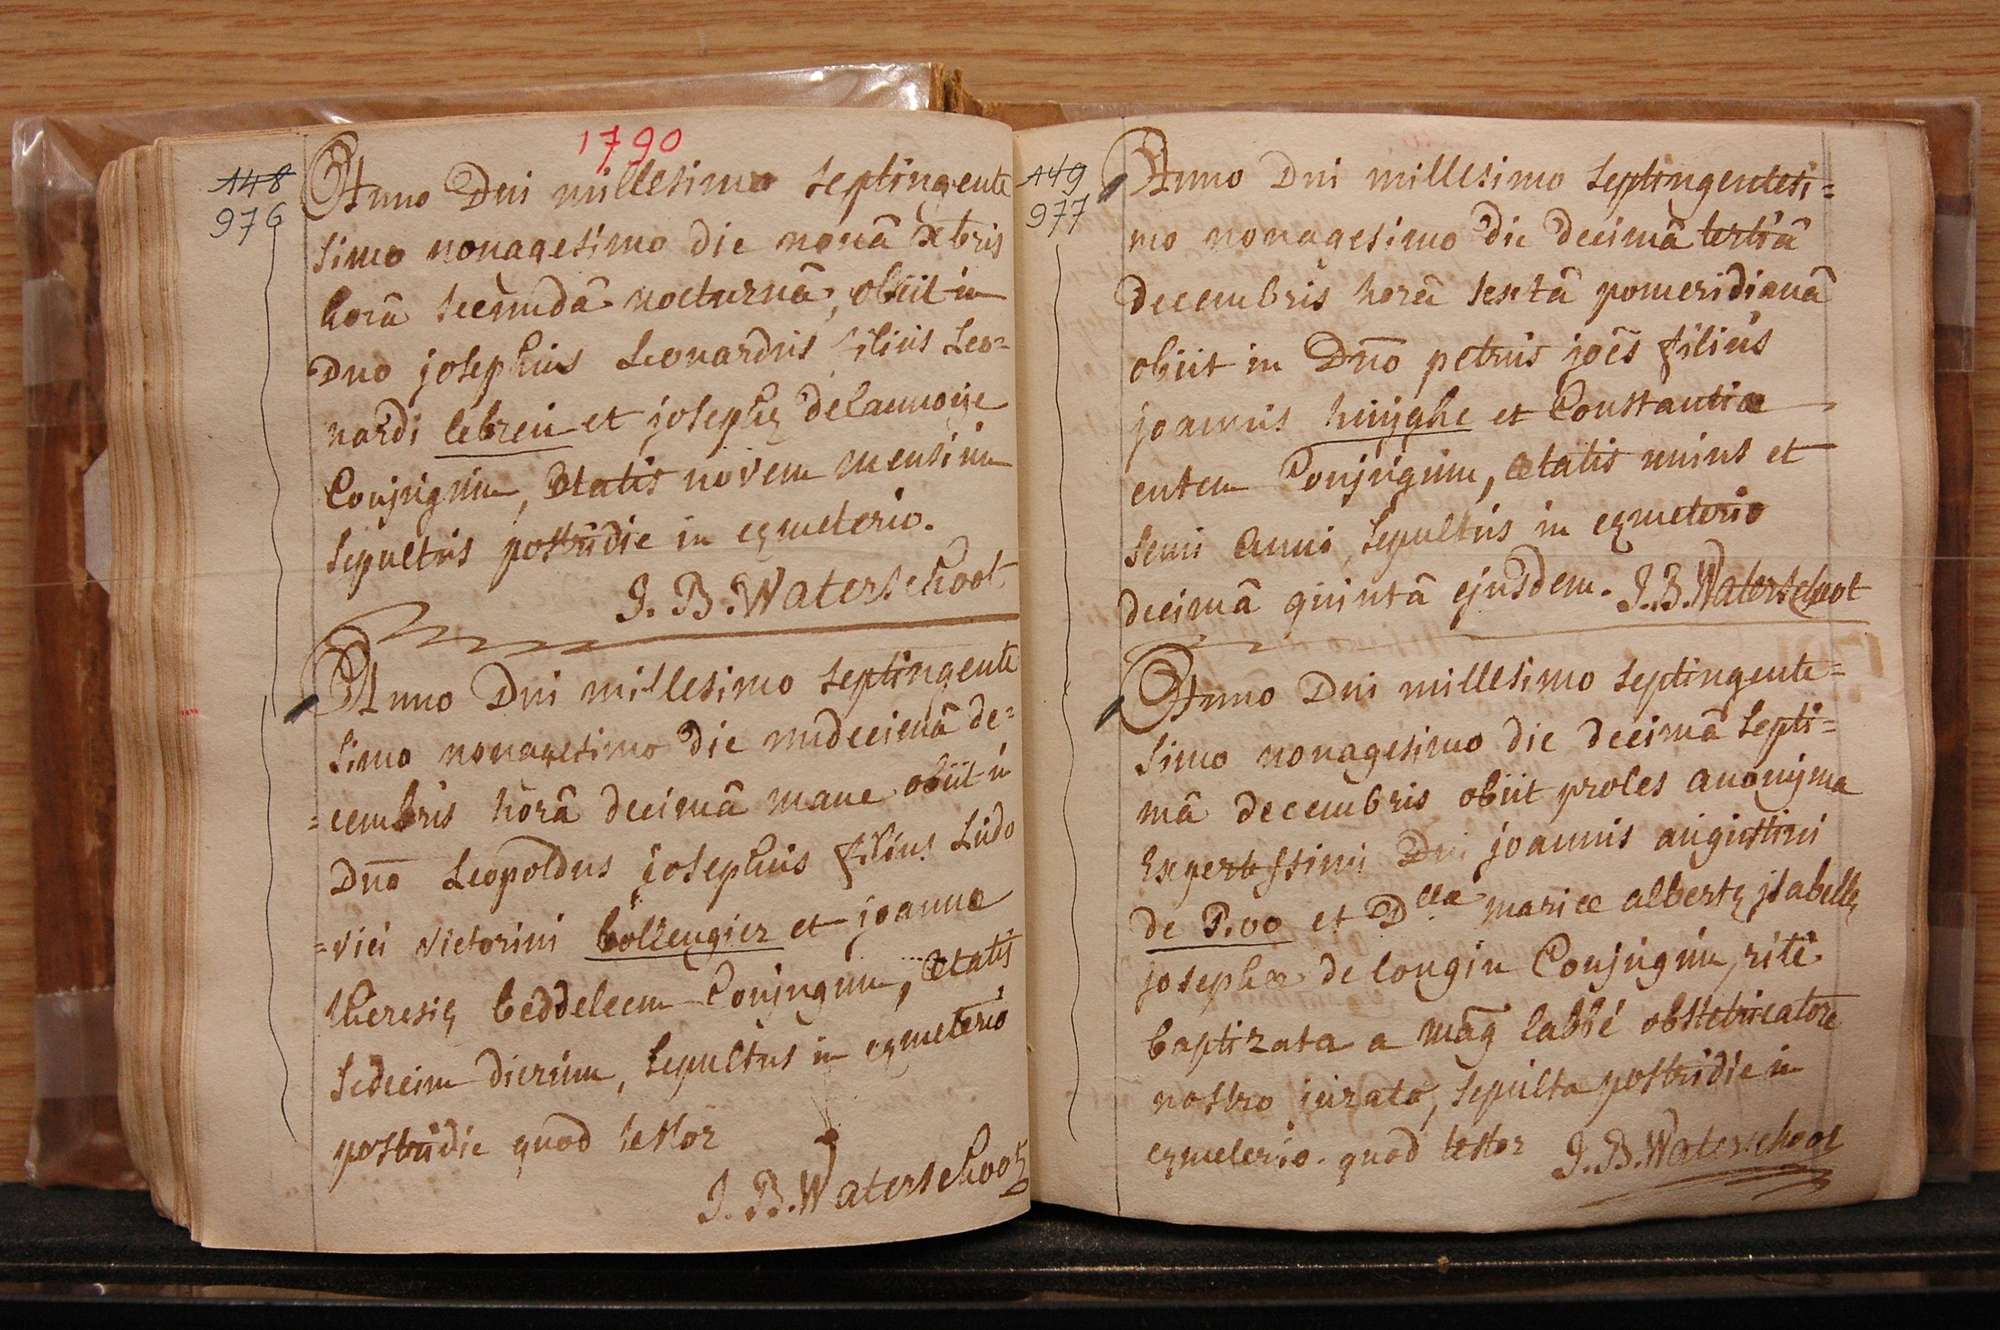 1790
148
976
Anno Dni millesimo septingente
simo nonagesimo die nonâ Xbris
horâ secundâ nocturnâ, obiit in
Dno josephus Leonardus filius Leo-
nardi lebreu et josephę delannoije
Conjugum, ætatis novem mensium
sepultus postridie in cęmeterio.
J. B. Waterschoot
Anno Dni millesimo septingente
simo nonagesimo die undecimâ de=
=cembris horâ decimâ mane obiit in
Dno Leopoldus josephus filius Ludo
=vici victorini bollengier et joannæ
theresię beddeleem Conjugum, ætatis
sedecim dierum, sepultus in cęmeterio
postridie quod testor
J. B. Waterschoot
149
977
Anno Dni millesimo septingentesi=
mo nonagesimo die decimâ tertiâ
decembris horâ sextâ pomeridianâ
obiit in Dno petrus joēs filius
joannis huijghe et Constantiæ
entem Conjugum, ætatis unius et
semi anni, sepultus in cęmeterio
decimâ quintâ ejusdem. J. B. Waterschoot
Anno Dni millesimo septingente=
simo nonagesimo die decimâ septi=
mâ decembris obiit proles anonijma
Expertissimi Dni joannis augustini
de Pvoo et Dllæ mariæ albertę jsabellę
josephæ de longin Conjugum, rite
baptizata a mag labbé obstetricatore
nostro jurato, sepulta postridie in
cęmeterio. quod testor J. B. Waterschoot